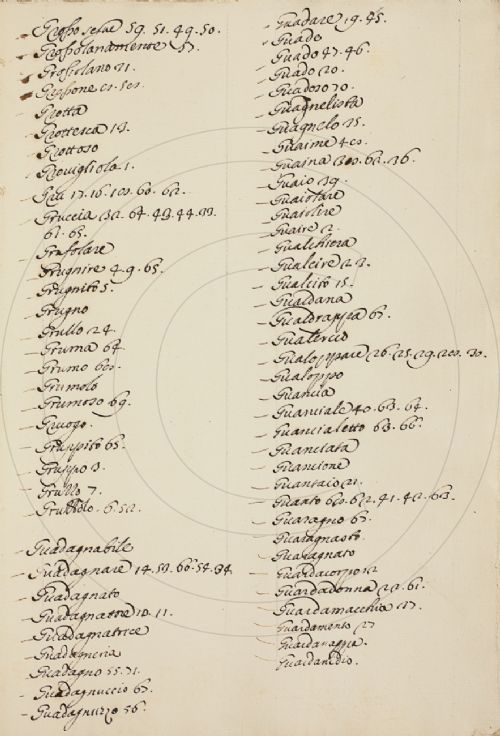 Grossolanamente 57.
Grossolano 21.
Grossone
Grotta
Grottesca 12.
Grottoso
Grovigliola 1.
Gru 17. 16. 60. 62.
Gruccia 32. 64. 43. 44. 33.
61. 65.
Grufolare
Grugnire 4. 9. 65.
Grugnito 5.
Grugno
Grullo 24.
Gruma 64.
Grumo
Grumolo
Grumoso 69.
Gruogo
Gruppito 65.
Gruppo 3.
Grullo 7.
6. 52.
Guadagnabile
Guadagnare 14. 53. 60. 54. 34
Guadagnato
Guadagnatore 10. 11.
Guadagnatrice
Guadagneria
Guadagno 55. 71.
Guadagnuccio 67.
Guadagnuzzo 56.
Guadare 19. 45.
Guado
Guado 47. 46.
Guado 20.
Guadoso 70.
Guagnelista
Guagnelo 25.
Guaime
Guaina 62. 36.
Guaio 39.
Guaiolare
Guaire 2.
Gualchiera
Gualcire 23.
Gualcito 15.
Gualdana
Gualdrappa 67.
Gualercio
Gualoppare 26. 25. 29.
Gualoppo
Guancia
Guanciale 40. 63. 64.
Guancialetto 63. 66.
Guanciata
Guancione
Guantaio 21.
Guanto 41. 42. 63.
Guaragno 67.
Guaragnasto
Guaragnato
Guardacorpo
Guardadonna 23. 61.
Guardamacchie 17.
Guardamento 27
Guardanidio.